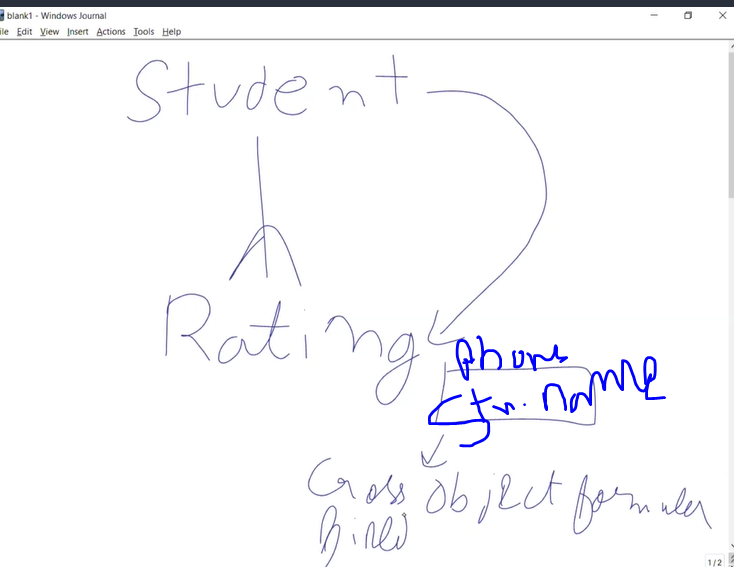 blank1 - Windows Journal
ile Edit View Insert Actions Tools Help
Student
Rating
Phone
name
Cross Object formula
1/2